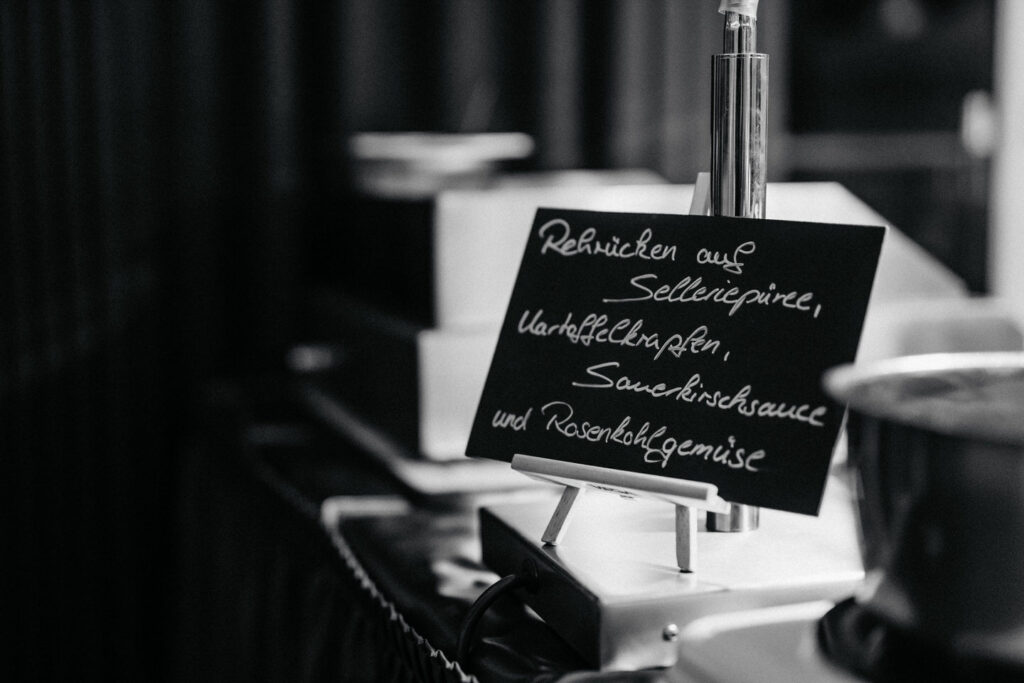 Rehrücken auf
Selleriepüree,
Kartoffelkrapfen,
Sauerkirschsauce
und Rosenkohlgemüse